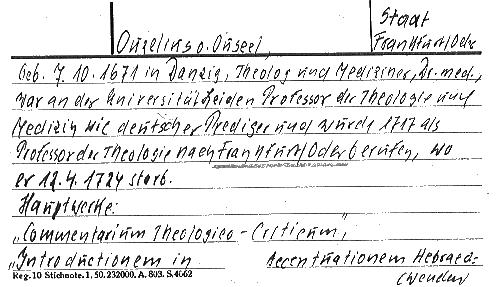 Staat
Ouzelius o. Ouseel, Frankfurt/Oder
Geb. 7. 10. 1671 in Danzig, Theolog und Mediziner, Dr. med.,
war an der Universität Leiden Professor der Theologie und
Medizin wie deutscher Prediger und wurde 1717 als
Professor der Theologie nach Frankfurt/Oder berufen, wo
er 12. 4. 1724 starb.
Hauptwerke:
„Commentarium Theologico-Criticum“,
„Introductionem in Accentuationem Hebraeo-
Reg. 10 Stichnote. 1, 50. 232000. A. 803. S. 4062
(wenden)